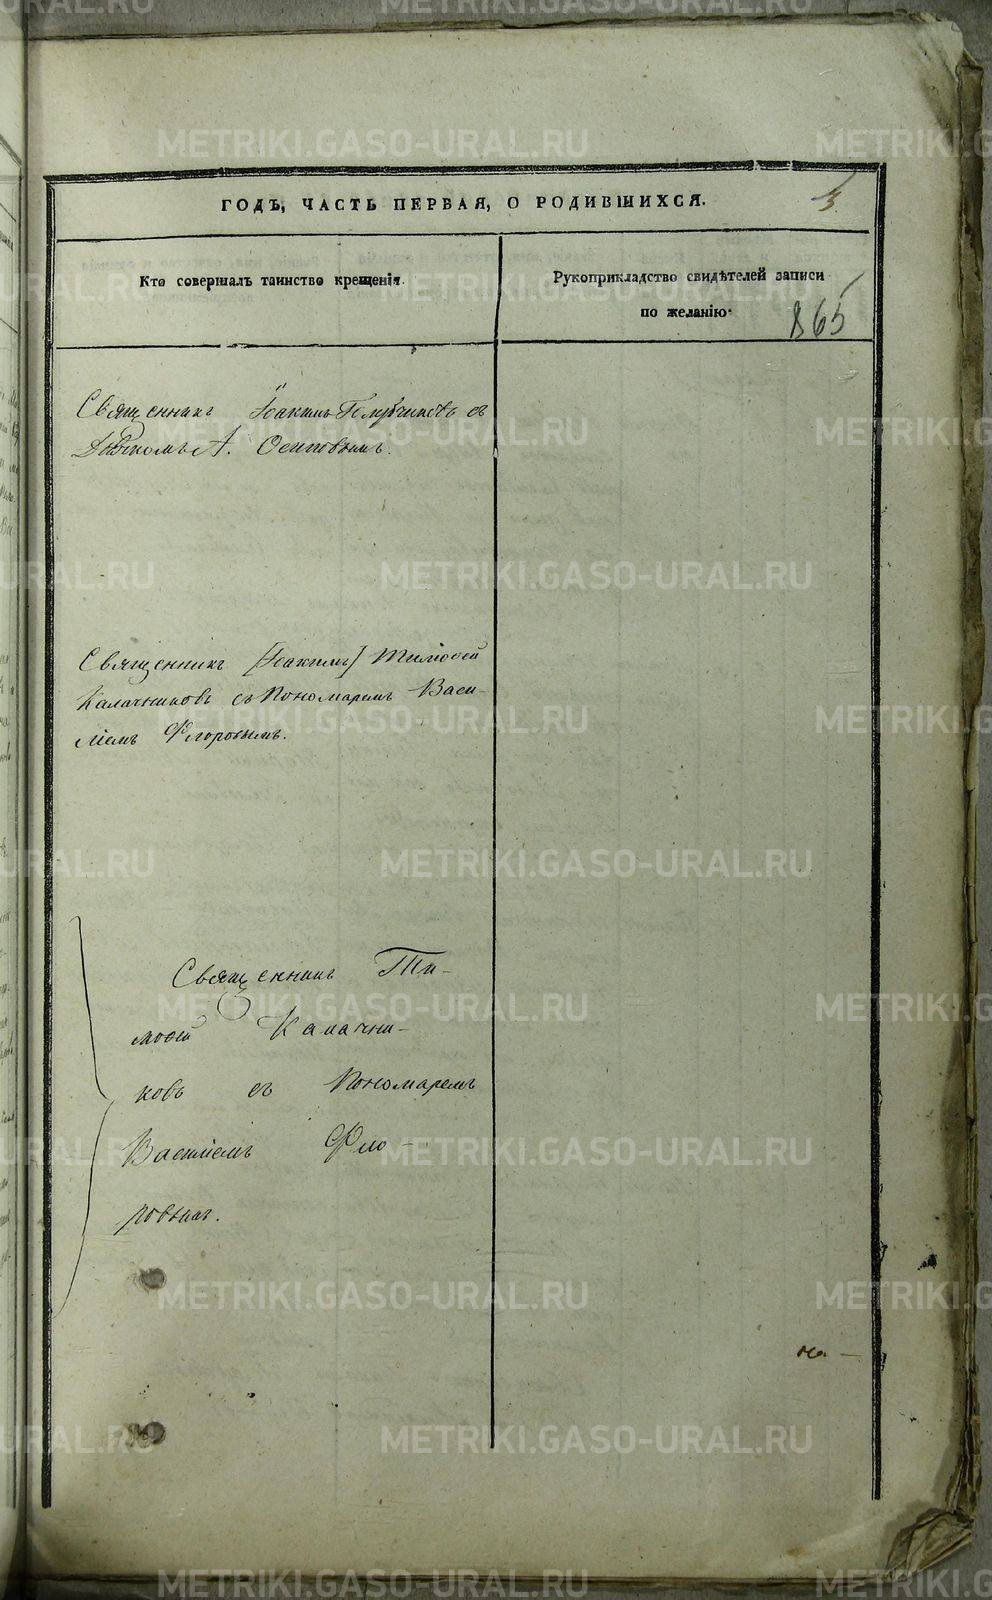 ГОДЪ, ЧАСТЬ ПЕРВАЯ, О РОДИВШИХСЯ.
3.
Кто совершалъ таинство крещенія.
Рукоприкладство свидѣтелей записи
по желанію.
865
Священникъ Іоакимъ Голубчиковъ съ
А. Осиповымъ.
Священникъ [Іоакимъ] Тимоѳей
Калачниковъ съ Пономаремъ Васи-
ліемъ Флоровымъ.
Священникъ Ти-
моѳей Калачни-
ковъ съ Пономаремъ
Василіемъ Фло-
ровымъ.
на —
METRIKI.GASO-URAL.RU